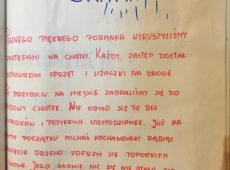 PEWNEGO PIĘKNEGO PORANKA WYRUSZYLIŚMY
ZASTĘPAMI NA CHATKI. KAŻDY ZASTĘP DOSTAŁ
ODPOWIEDNI SPRZĘT I LIZACZKI NA DROGĘ.
PO PRZYBYCIU NA MIEJSCE ZABRALIŚMY SIĘ DO
BUDOWY CHATEK. NIE OBYŁO SIĘ TO BEZ
I PRZYKRYCH NIESPODZIANEK. JUŻ NA
POCZĄTKU MICHAŚ KOCHANOWSKI RĄBIĄC
DRZEWO UDERZYŁ SIĘ TOPORKIEM
JEGO DŁONIE NIC SIĘ NIE STAŁO